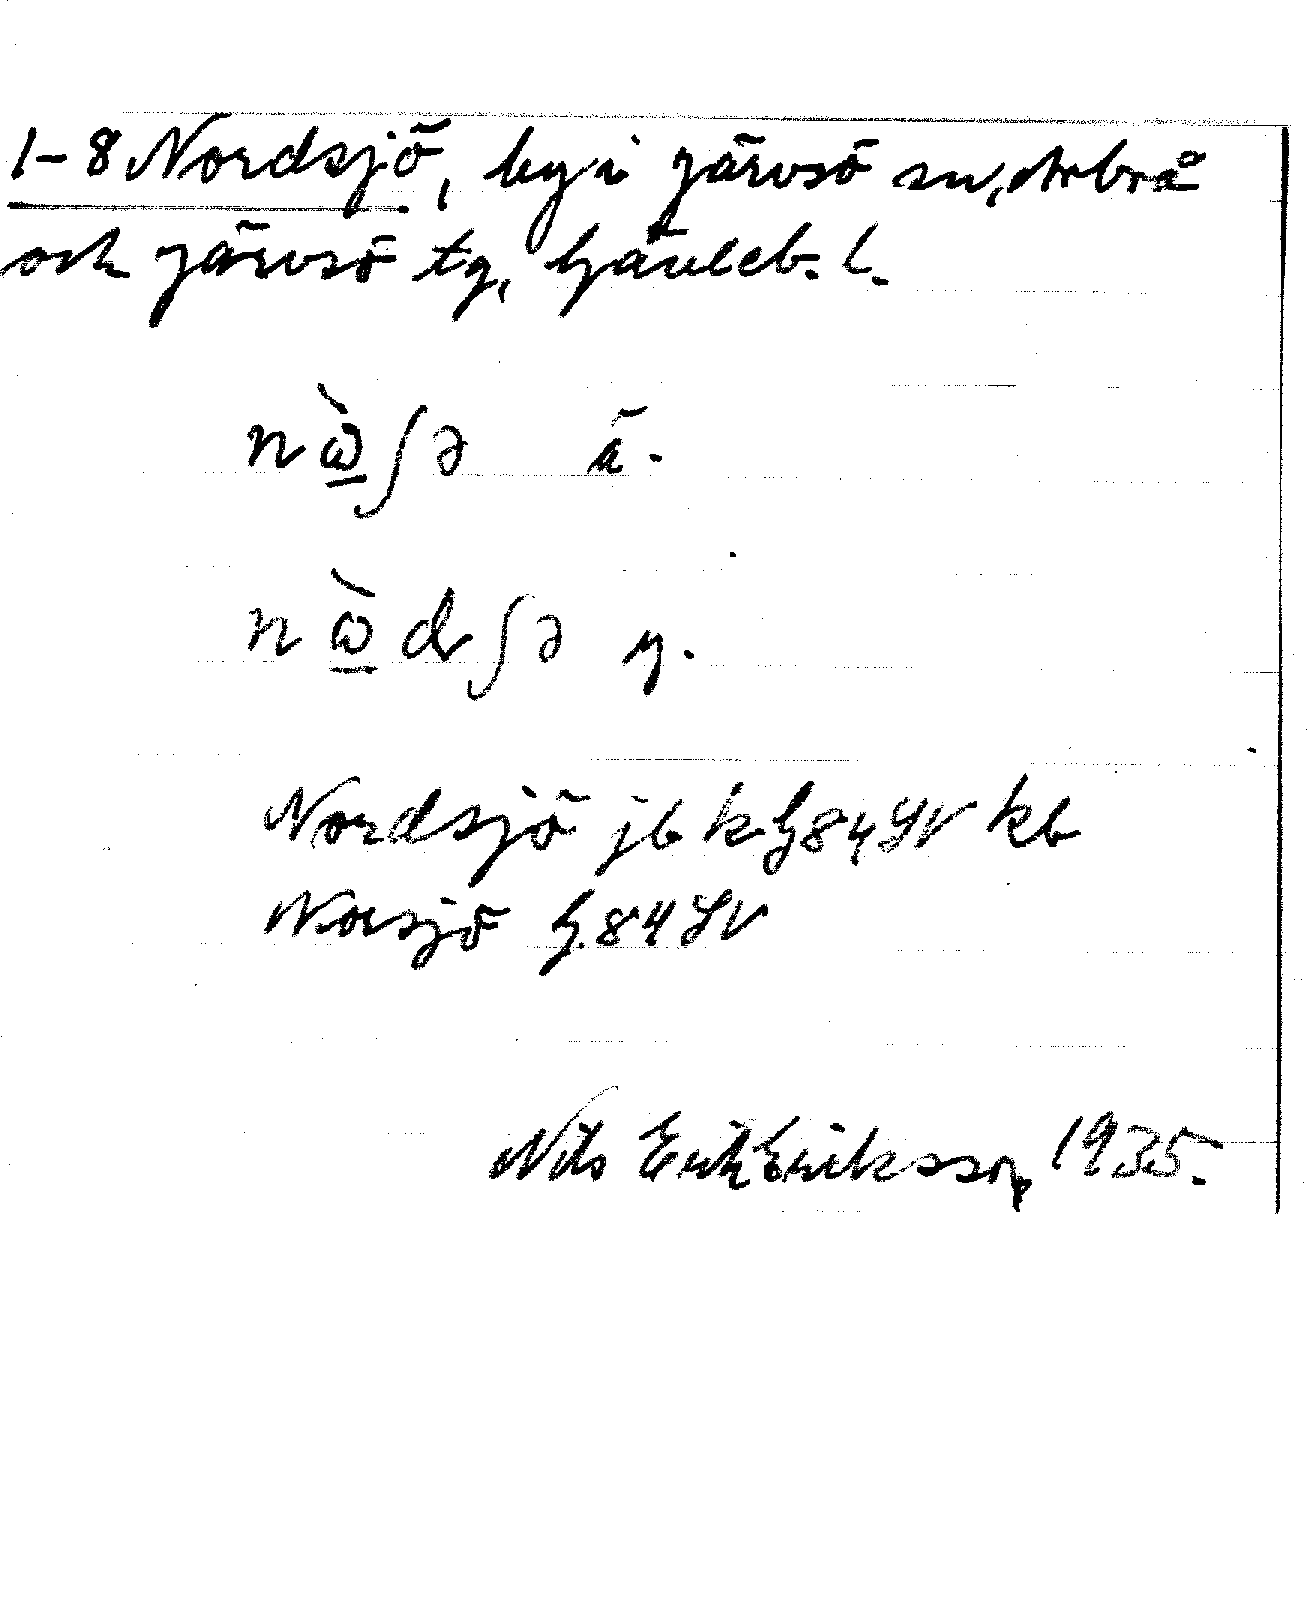 1-8 Nordsjö, by i Järvsö sn, Arbrå
och Järvsö tg, Gävleb. l.
nὼ̱ʃə ä.
nὼ̱dʃə y.
Nordsjö jb k G84 LV kb
Norsjö G.84 LV
Nils Erik Eriksson, 1935.